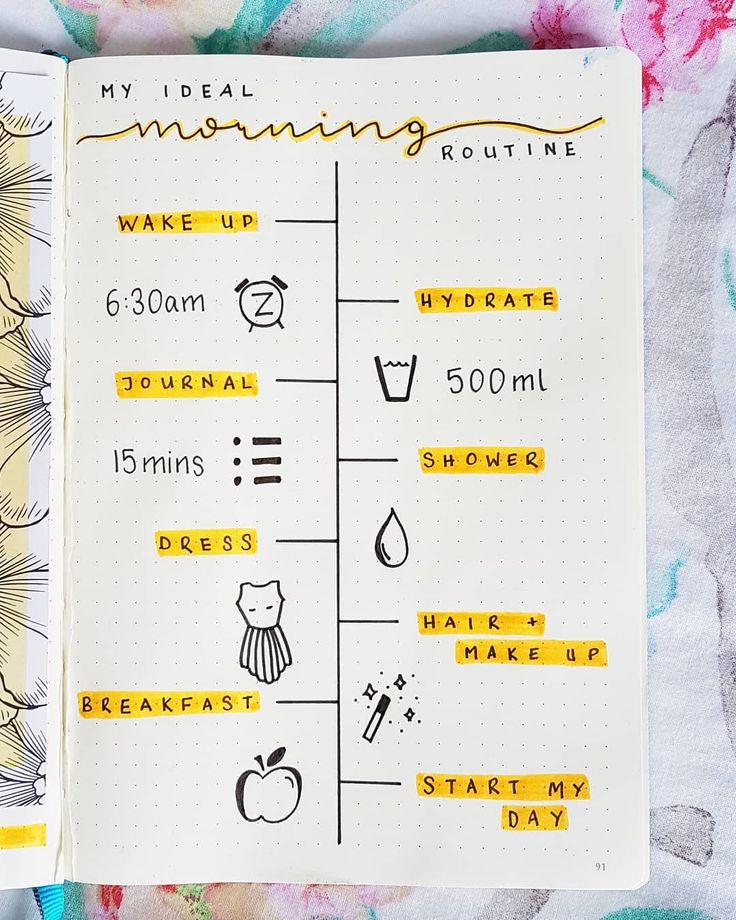 MY IDEAL
morning
ROUTINE
WAKE UP
6:30am
Z
HYDRATE
500ml
JOURNAL
15mins
SHOWER
DRESS
HAIR +
MAKE UP
BREAKFAST
START MY
DAY
91